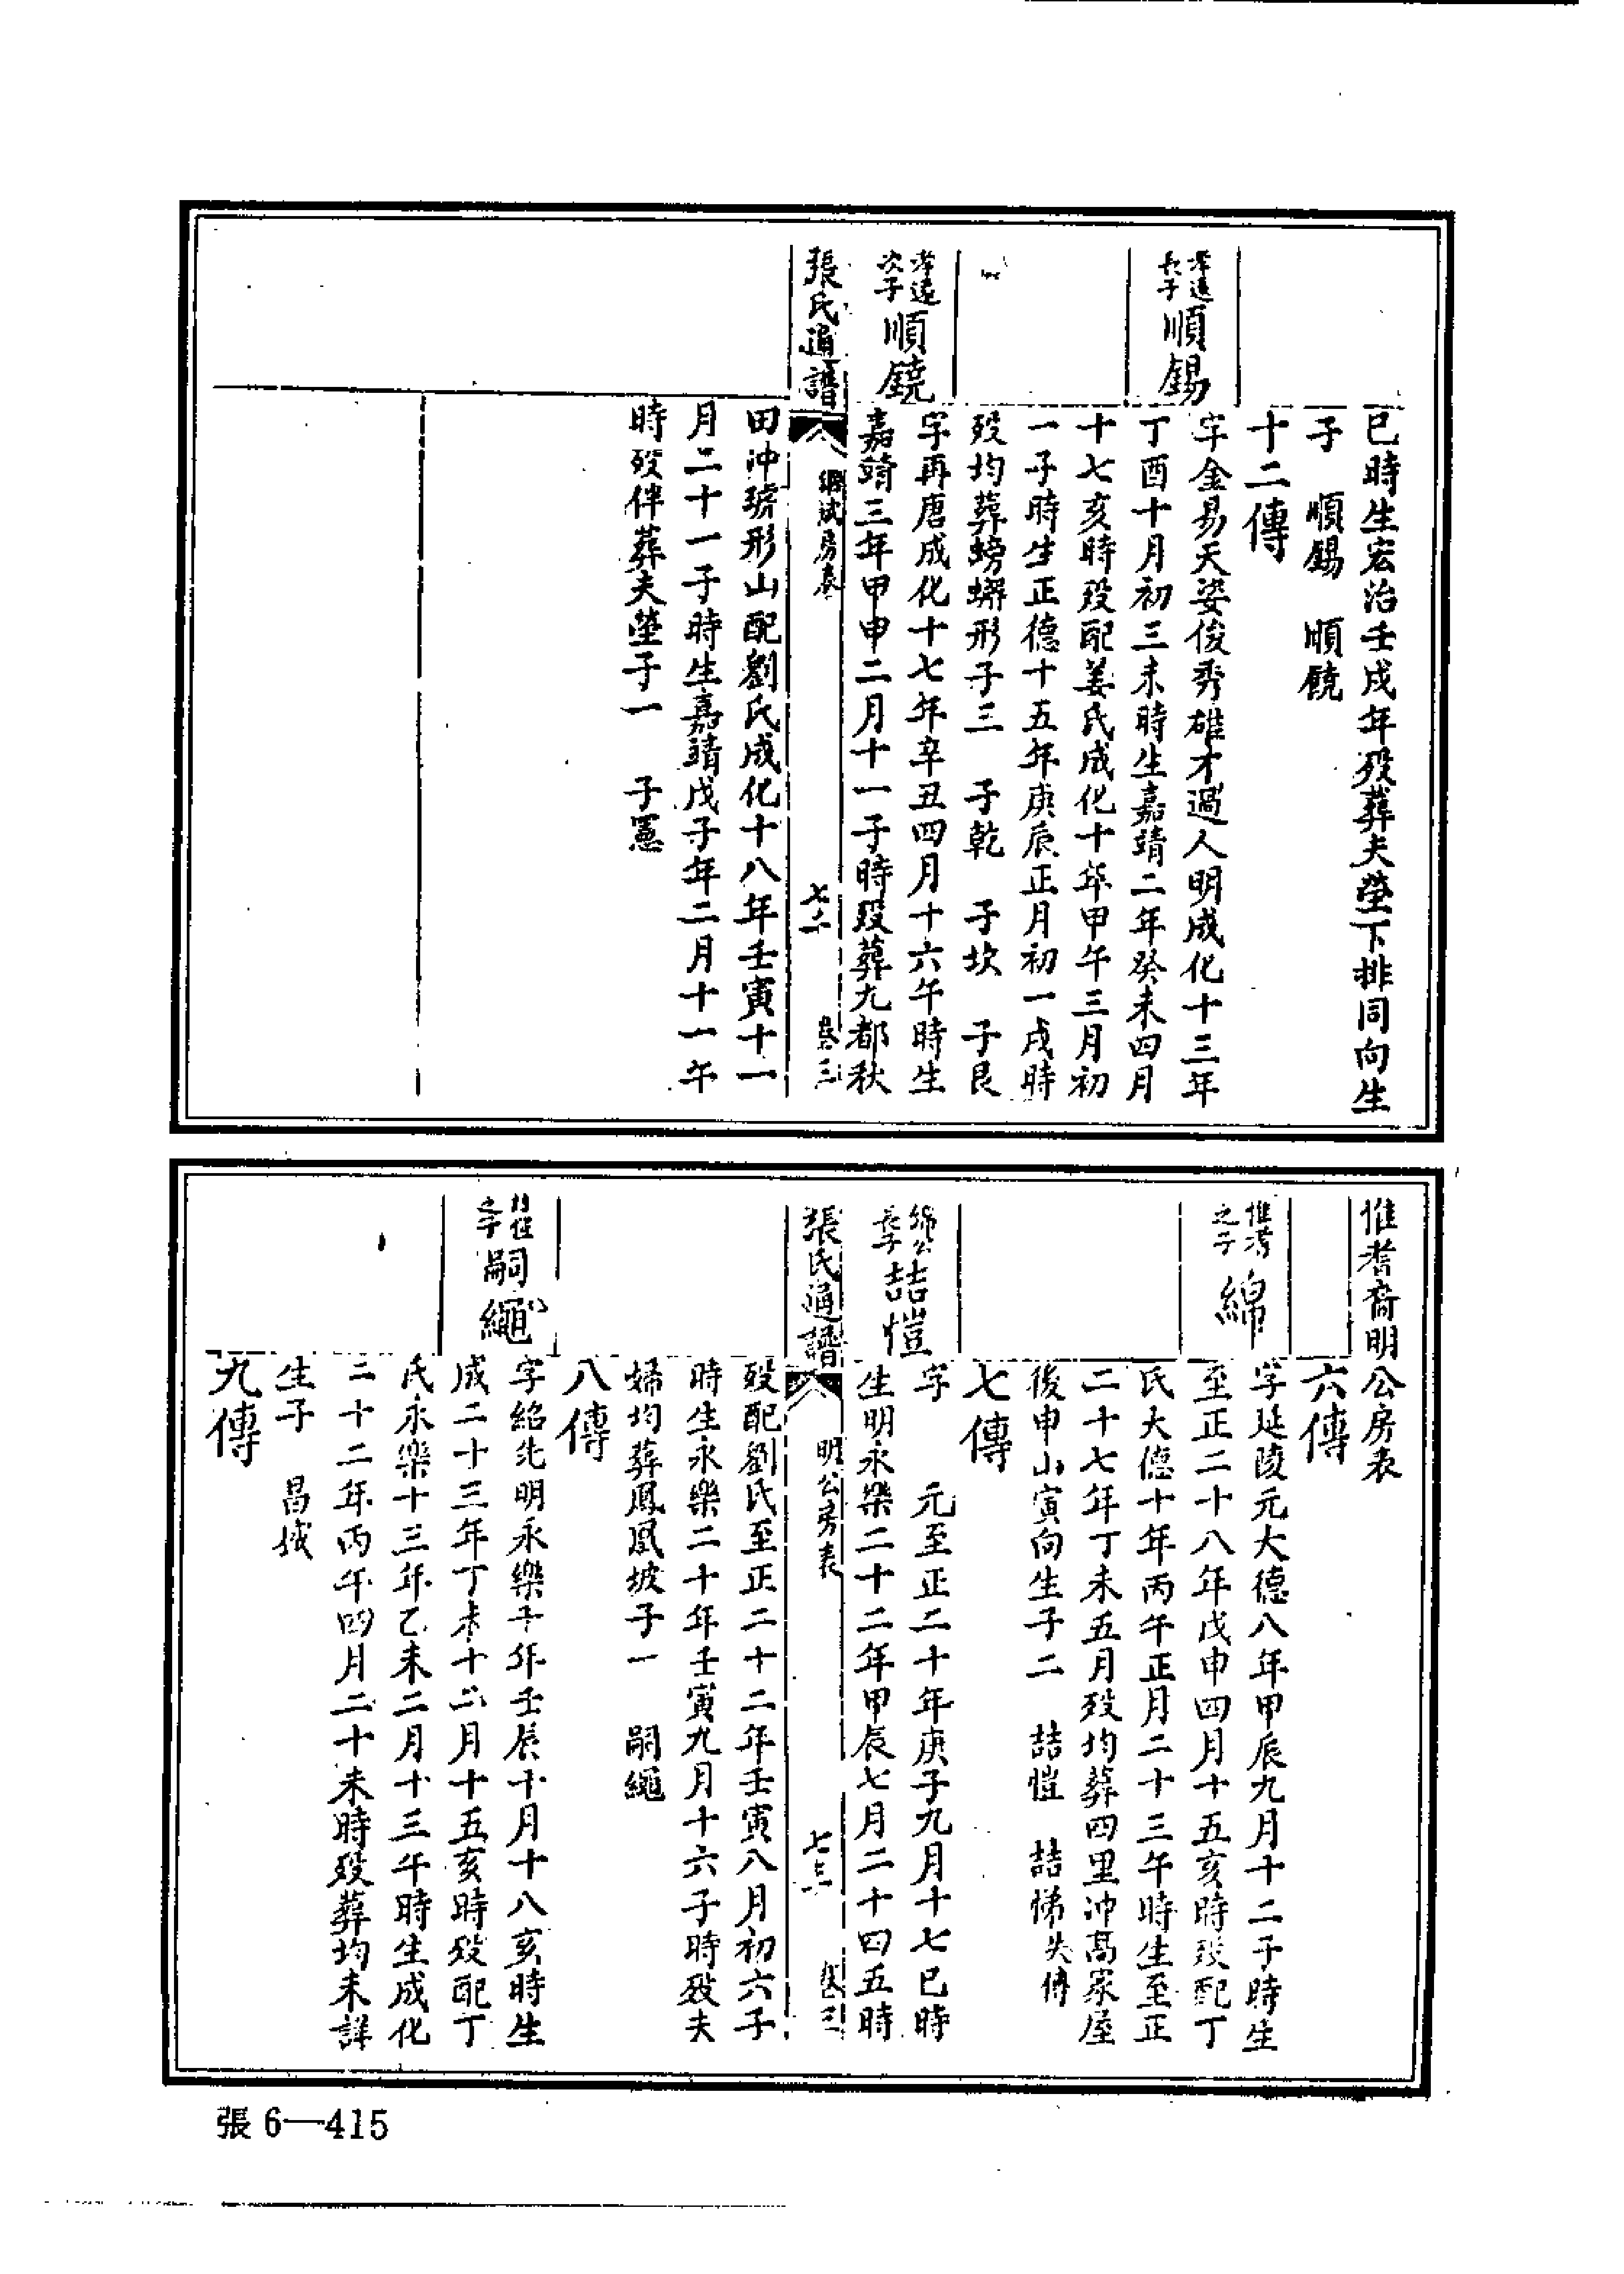 巳時生宏治壬戌年歿葬夫塋下排同向生
子 順錫 順鐃
十二傳
孝遠
長子
順錫
字金易天姿俊秀雄才過人明成化十三年
丁酉十月初三未時生嘉靖二年癸未四月
十七亥時歿配姜氏成化十年甲午三月初
一子時生正德十五年庚辰正月初一戌時
歿均葬螃蠏形子三 子乾 子坎 子艮
孝遠
次子
順鐃
字再唐成化十七年辛丑四月十六午時生
嘉靖三年甲申二月十一子時歿葬九都秋
張氏通譜
綱斌房表
七二
卷三
田沖琥形山配劉氏成化十八年壬寅十一
月二十一子時生嘉靖戊子年二月十一午
時歿伴葬夫塋子一 子憲
惟耆裔明公房表
六傳
惟耆
之子
綿
字延陵元大德八年甲辰九月十二子時生
至正二十八年戊申四月十五亥時歿配丁
氏大德十年丙午正月二十三午時生至正
二十七年丁未五月歿均葬四里沖髙家屋
後申山寅向生子二 喆愷 喆悌失傳
七傳
綿公
長子
喆愷
字 元至正二十年庚子九月十七巳時
生明永樂二十二年甲辰七月二十四五時
張氏通譜
明公房表
七三
卷三
歿配劉氏至正二十二年壬寅八月初六子
時生永樂二十年壬寅九月十六子時歿夫
婦均葬鳳凰坡子一 嗣繩
八傳
之子
嗣繩
字紹先明永樂十年壬辰十月十八亥時生
成二十三年丁未十二月十五亥時歿配丁
氏永樂十三年乙未二月十三午時生成化
二十二年丙午四月二十未時歿葬均未詳
生子 昌城
九傳
張6—415